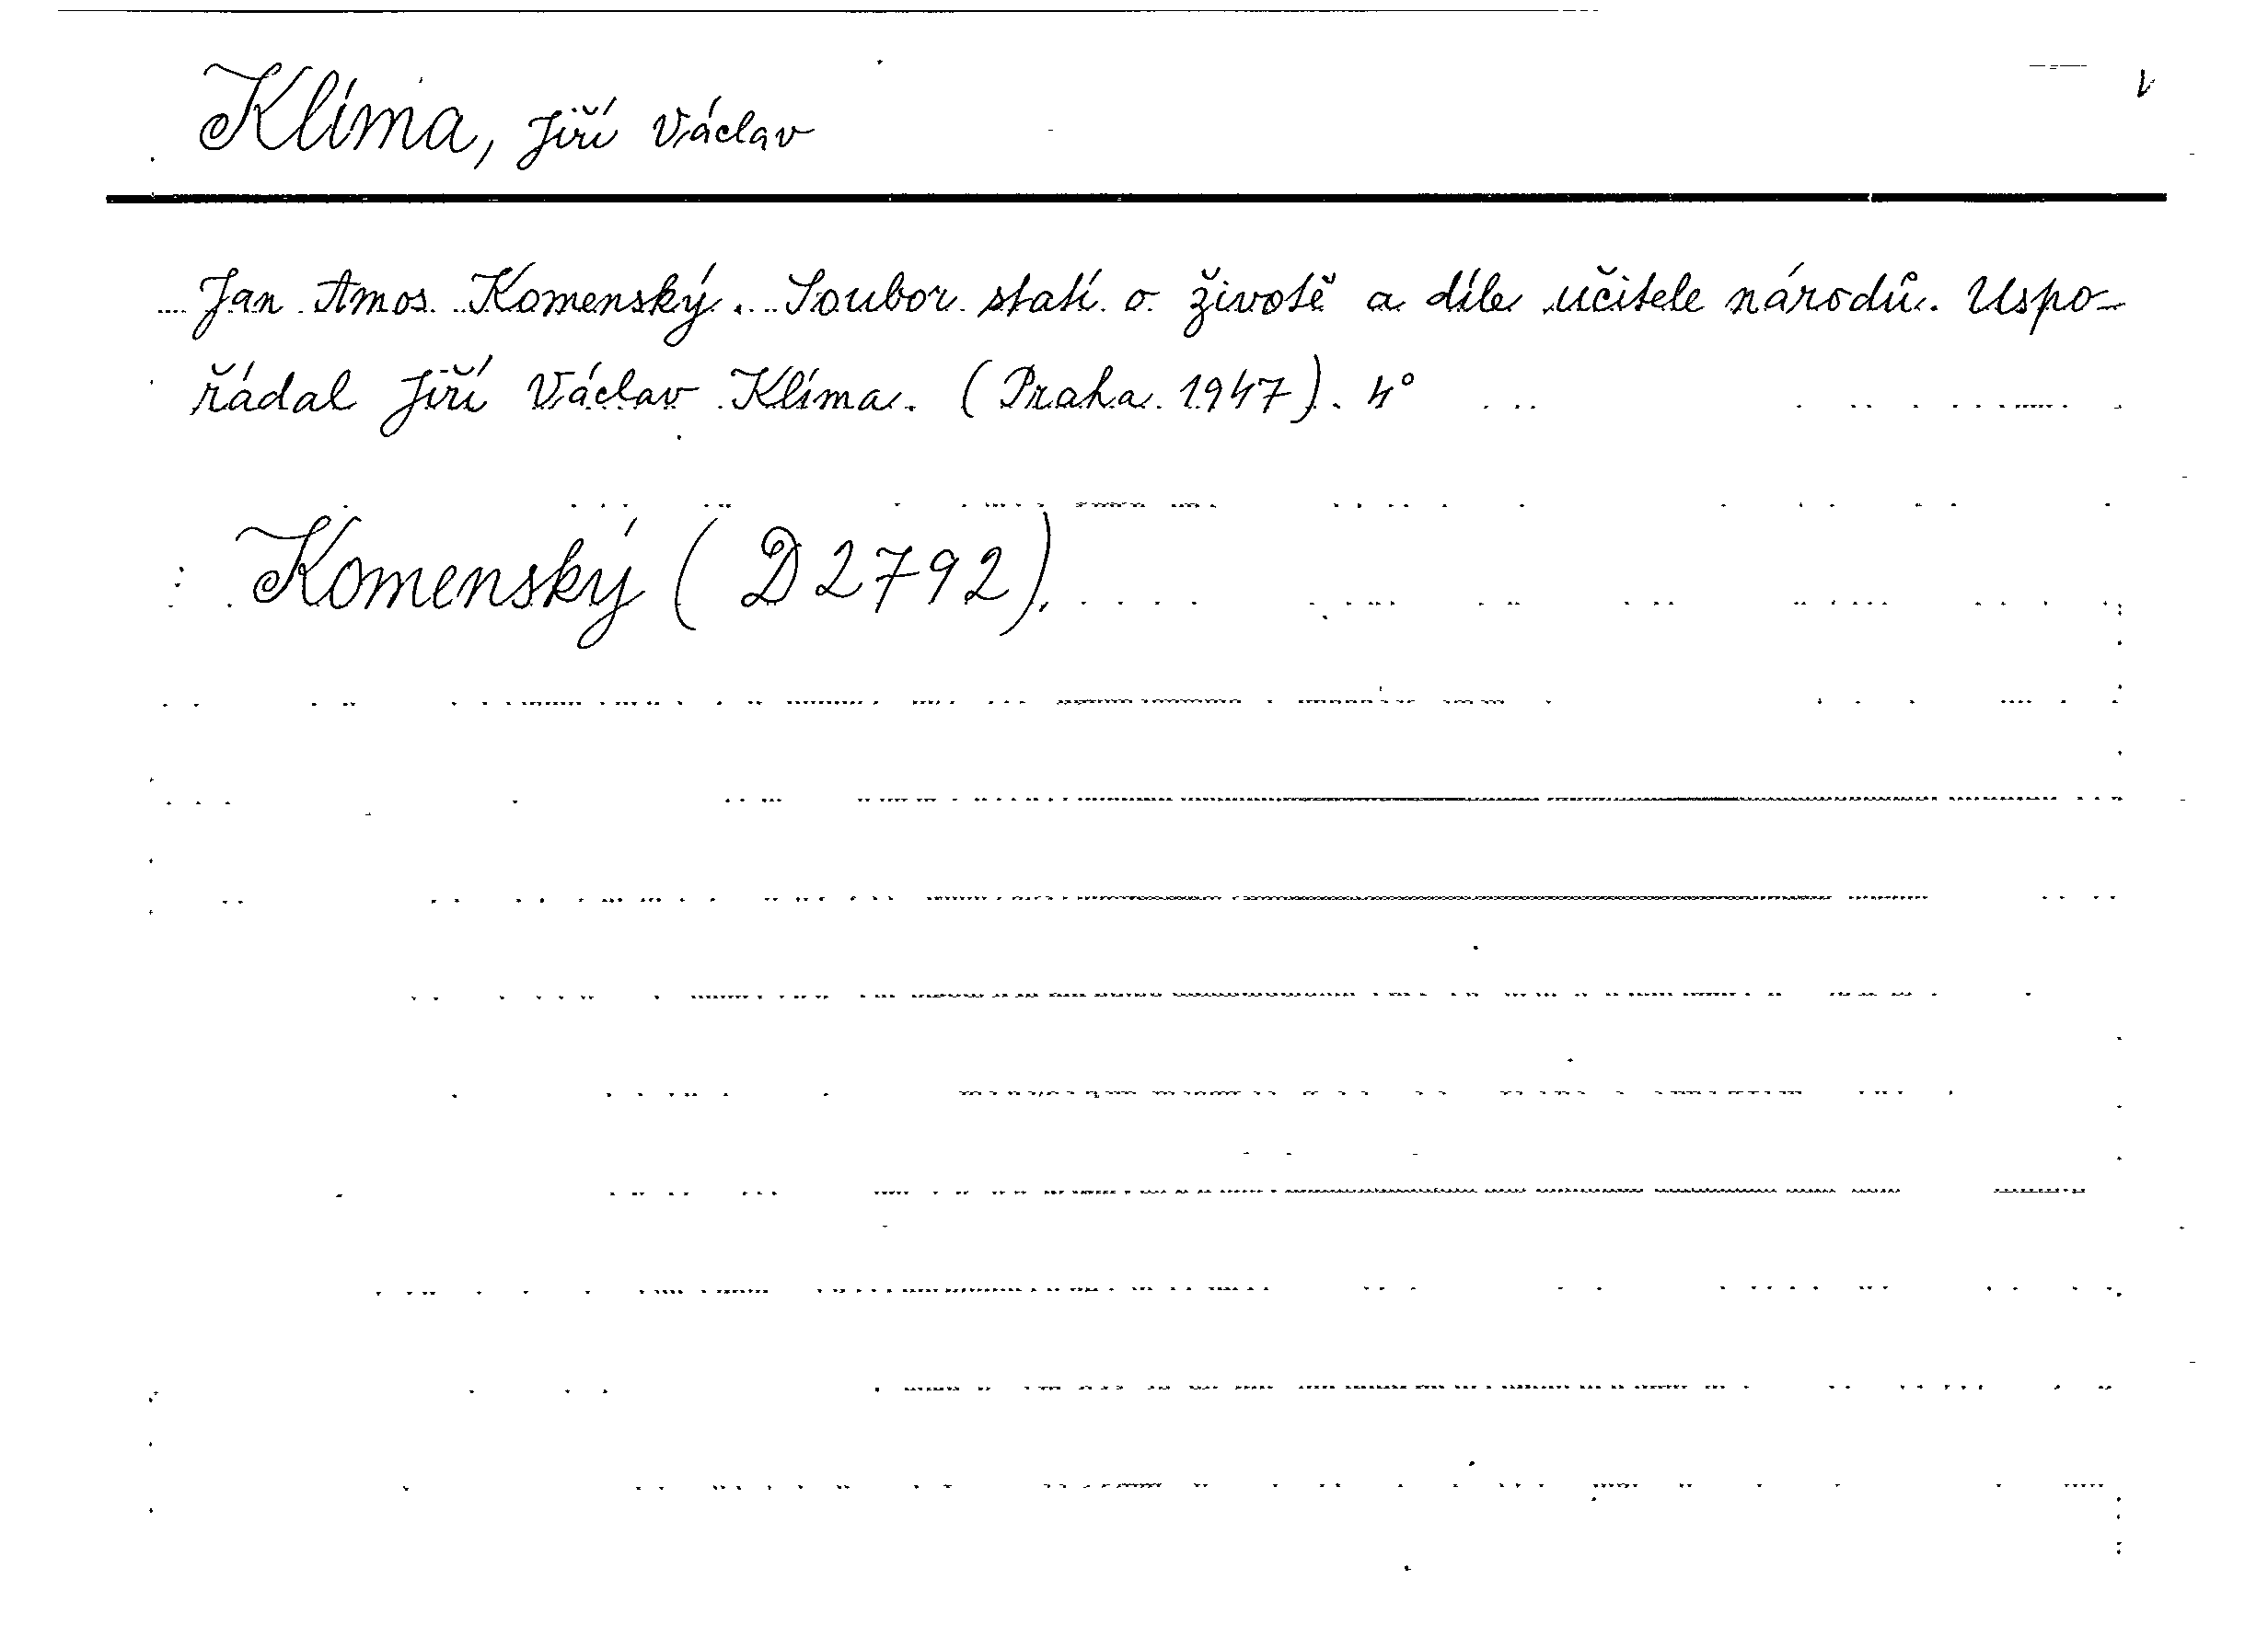 Klíma, Jiří Václav
Jan Amos Komenský. Soubor statí o životě a díle učitele národů. Uspo-
řádal Jiří Václav Klíma. (Praha 1947). 4°
Komenský (D 2792).